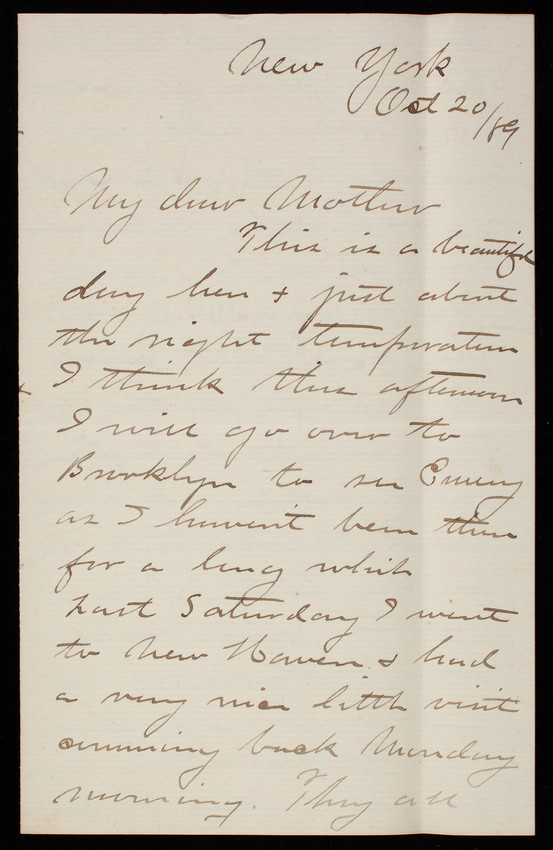 New York
Oct 20/89
My dear Mother
This is a beautiful
day here & just about
the right temperature
I think this afternoon
I will go over to
Brooklyn to see Emery
as I haven't been there
for a long while
Last Saturday I went
to New Haven & had
a very nice little visit
comming back Monday
morning. They all